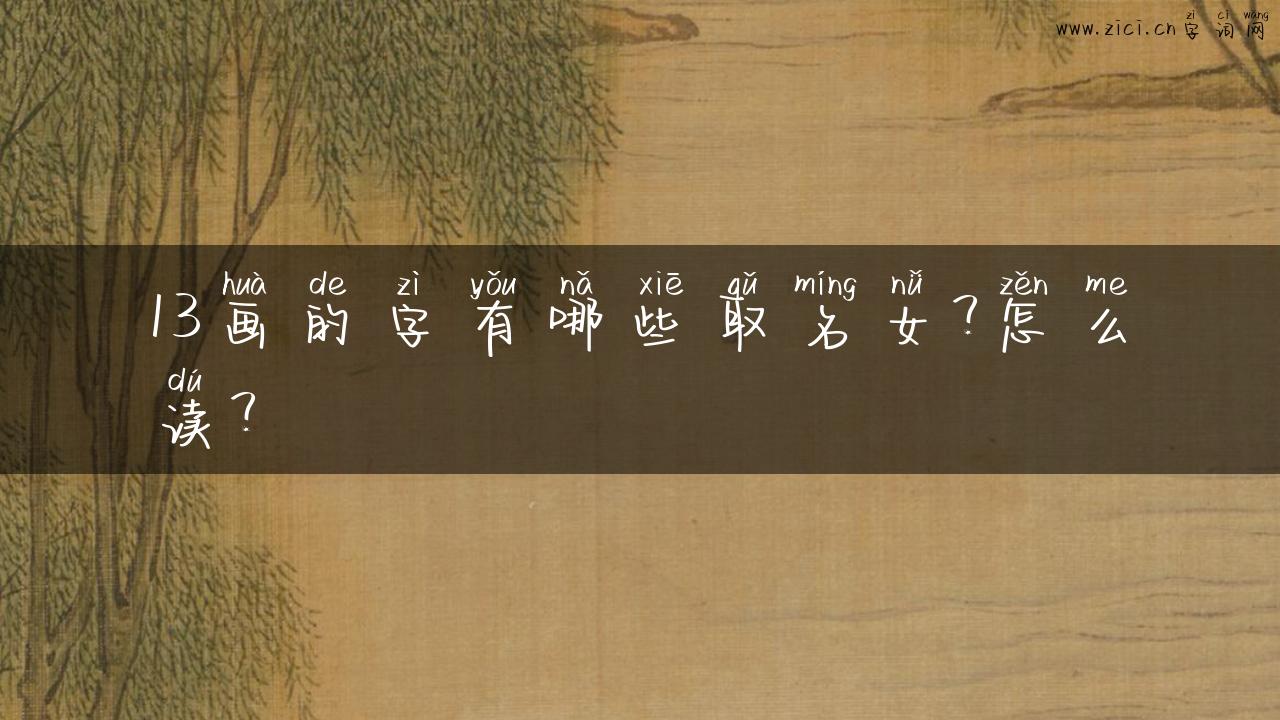 zì cí wǎng
www.zici.cn字词网
huà de zì yǒu nǎ xiē qǔ míng nǚ zěn me
13画的字有哪些取名女？怎么
dú
读？